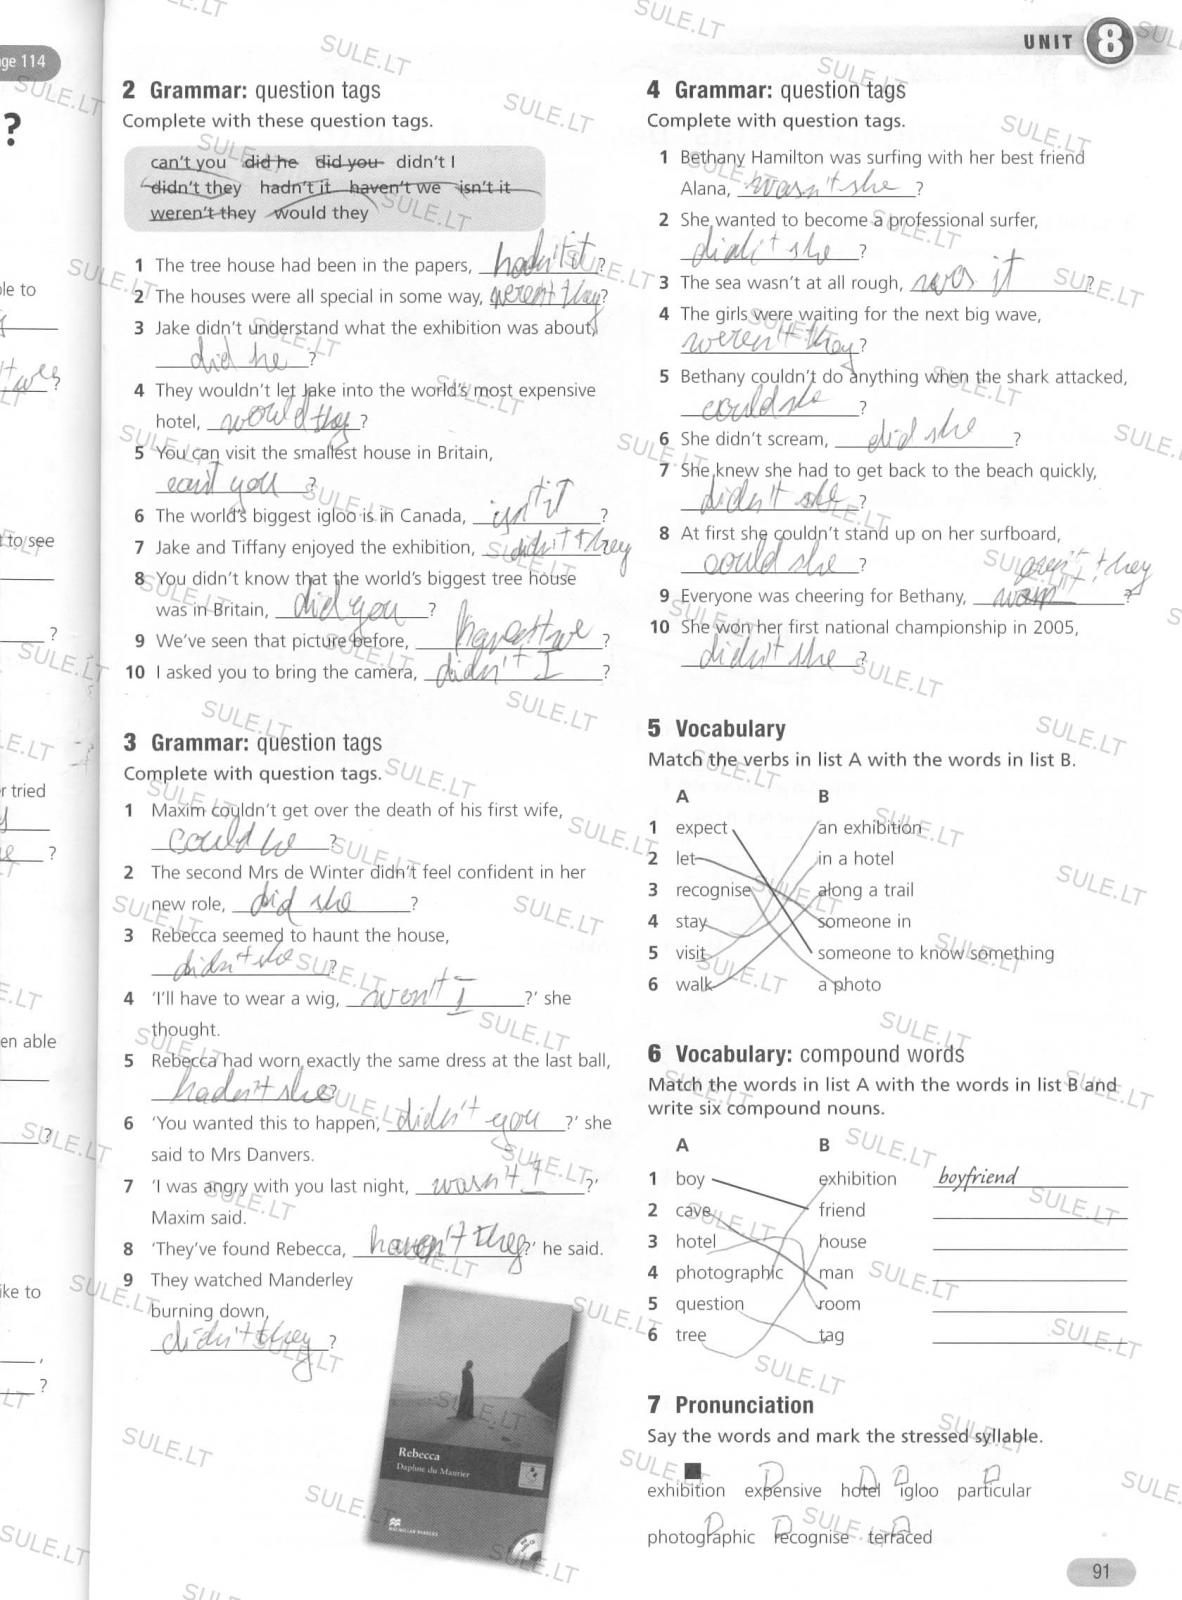 UNIT 8
ge 114
?
le to
?
to see
?
r tried
?
en able
?
ike to
,
?
2 Grammar: question tags
Complete with these question tags.
can't you did he did you didn't I
didn't they hadn't it haven't we isn't it
weren't they would they
1 The tree house had been in the papers, hadn't it?
2 The houses were all special in some way, weren't they?
3 Jake didn't understand what the exhibition was about,
did he ?
4 They wouldn't let Jake into the world's most expensive
hotel, would they ?
5 You can visit the smallest house in Britain,
can't you ?
6 The world's biggest igloo is in Canada, isn't it ?
7 Jake and Tiffany enjoyed the exhibition, didn't they
8 You didn't know that the world's biggest tree house
was in Britain, did you ?
9 We've seen that picture before, haven't we ?
10 I asked you to bring the camera, didn't I ?
3 Grammar: question tags
Complete with question tags.
1 Maxim couldn't get over the death of his first wife,
could he ?
2 The second Mrs de Winter didn't feel confident in her
new role, did she ?
3 Rebecca seemed to haunt the house,
didn't she ?
4 'I'll have to wear a wig, won't I ?' she
thought.
5 Rebecca had worn exactly the same dress at the last ball,
hadn't she?
6 'You wanted this to happen, didn't you ?' she
said to Mrs Danvers.
7 'I was angry with you last night, wasn't I ?'
Maxim said.
8 'They've found Rebecca, haven't they ?' he said.
9 They watched Manderley
burning down,
didn't they ?
Rebecca
Daphne du Maurier
MACMILLAN READERS
4 Grammar: question tags
Complete with question tags.
1 Bethany Hamilton was surfing with her best friend
Alana, wasn't she ?
2 She wanted to become a professional surfer,
didn't she ?
3 The sea wasn't at all rough, was it ?
4 The girls were waiting for the next big wave,
weren't they ?
5 Bethany couldn't do anything when the shark attacked,
could she ?
6 She didn't scream, did she ?
7 She knew she had to get back to the beach quickly,
didn't she ?
8 At first she couldn't stand up on her surfboard,
could she ?
9 Everyone was cheering for Bethany, ?
10 She won her first national championship in 2005,
didn't she ?
5 Vocabulary
Match the verbs in list A with the words in list B.
A B
1 expect an exhibition
2 let in a hotel
3 recognise along a trail
4 stay someone in
5 visit someone to know something
6 walk a photo
6 Vocabulary: compound words
Match the words in list A with the words in list B and
write six compound nouns.
A B
1 boy exhibition boyfriend
2 cave friend
3 hotel house
4 photographic man
5 question room
6 tree tag
7 Pronunciation
Say the words and mark the stressed syllable.
exhibition expensive hotel igloo particular
photographic recognise terraced
91
SULE.LT